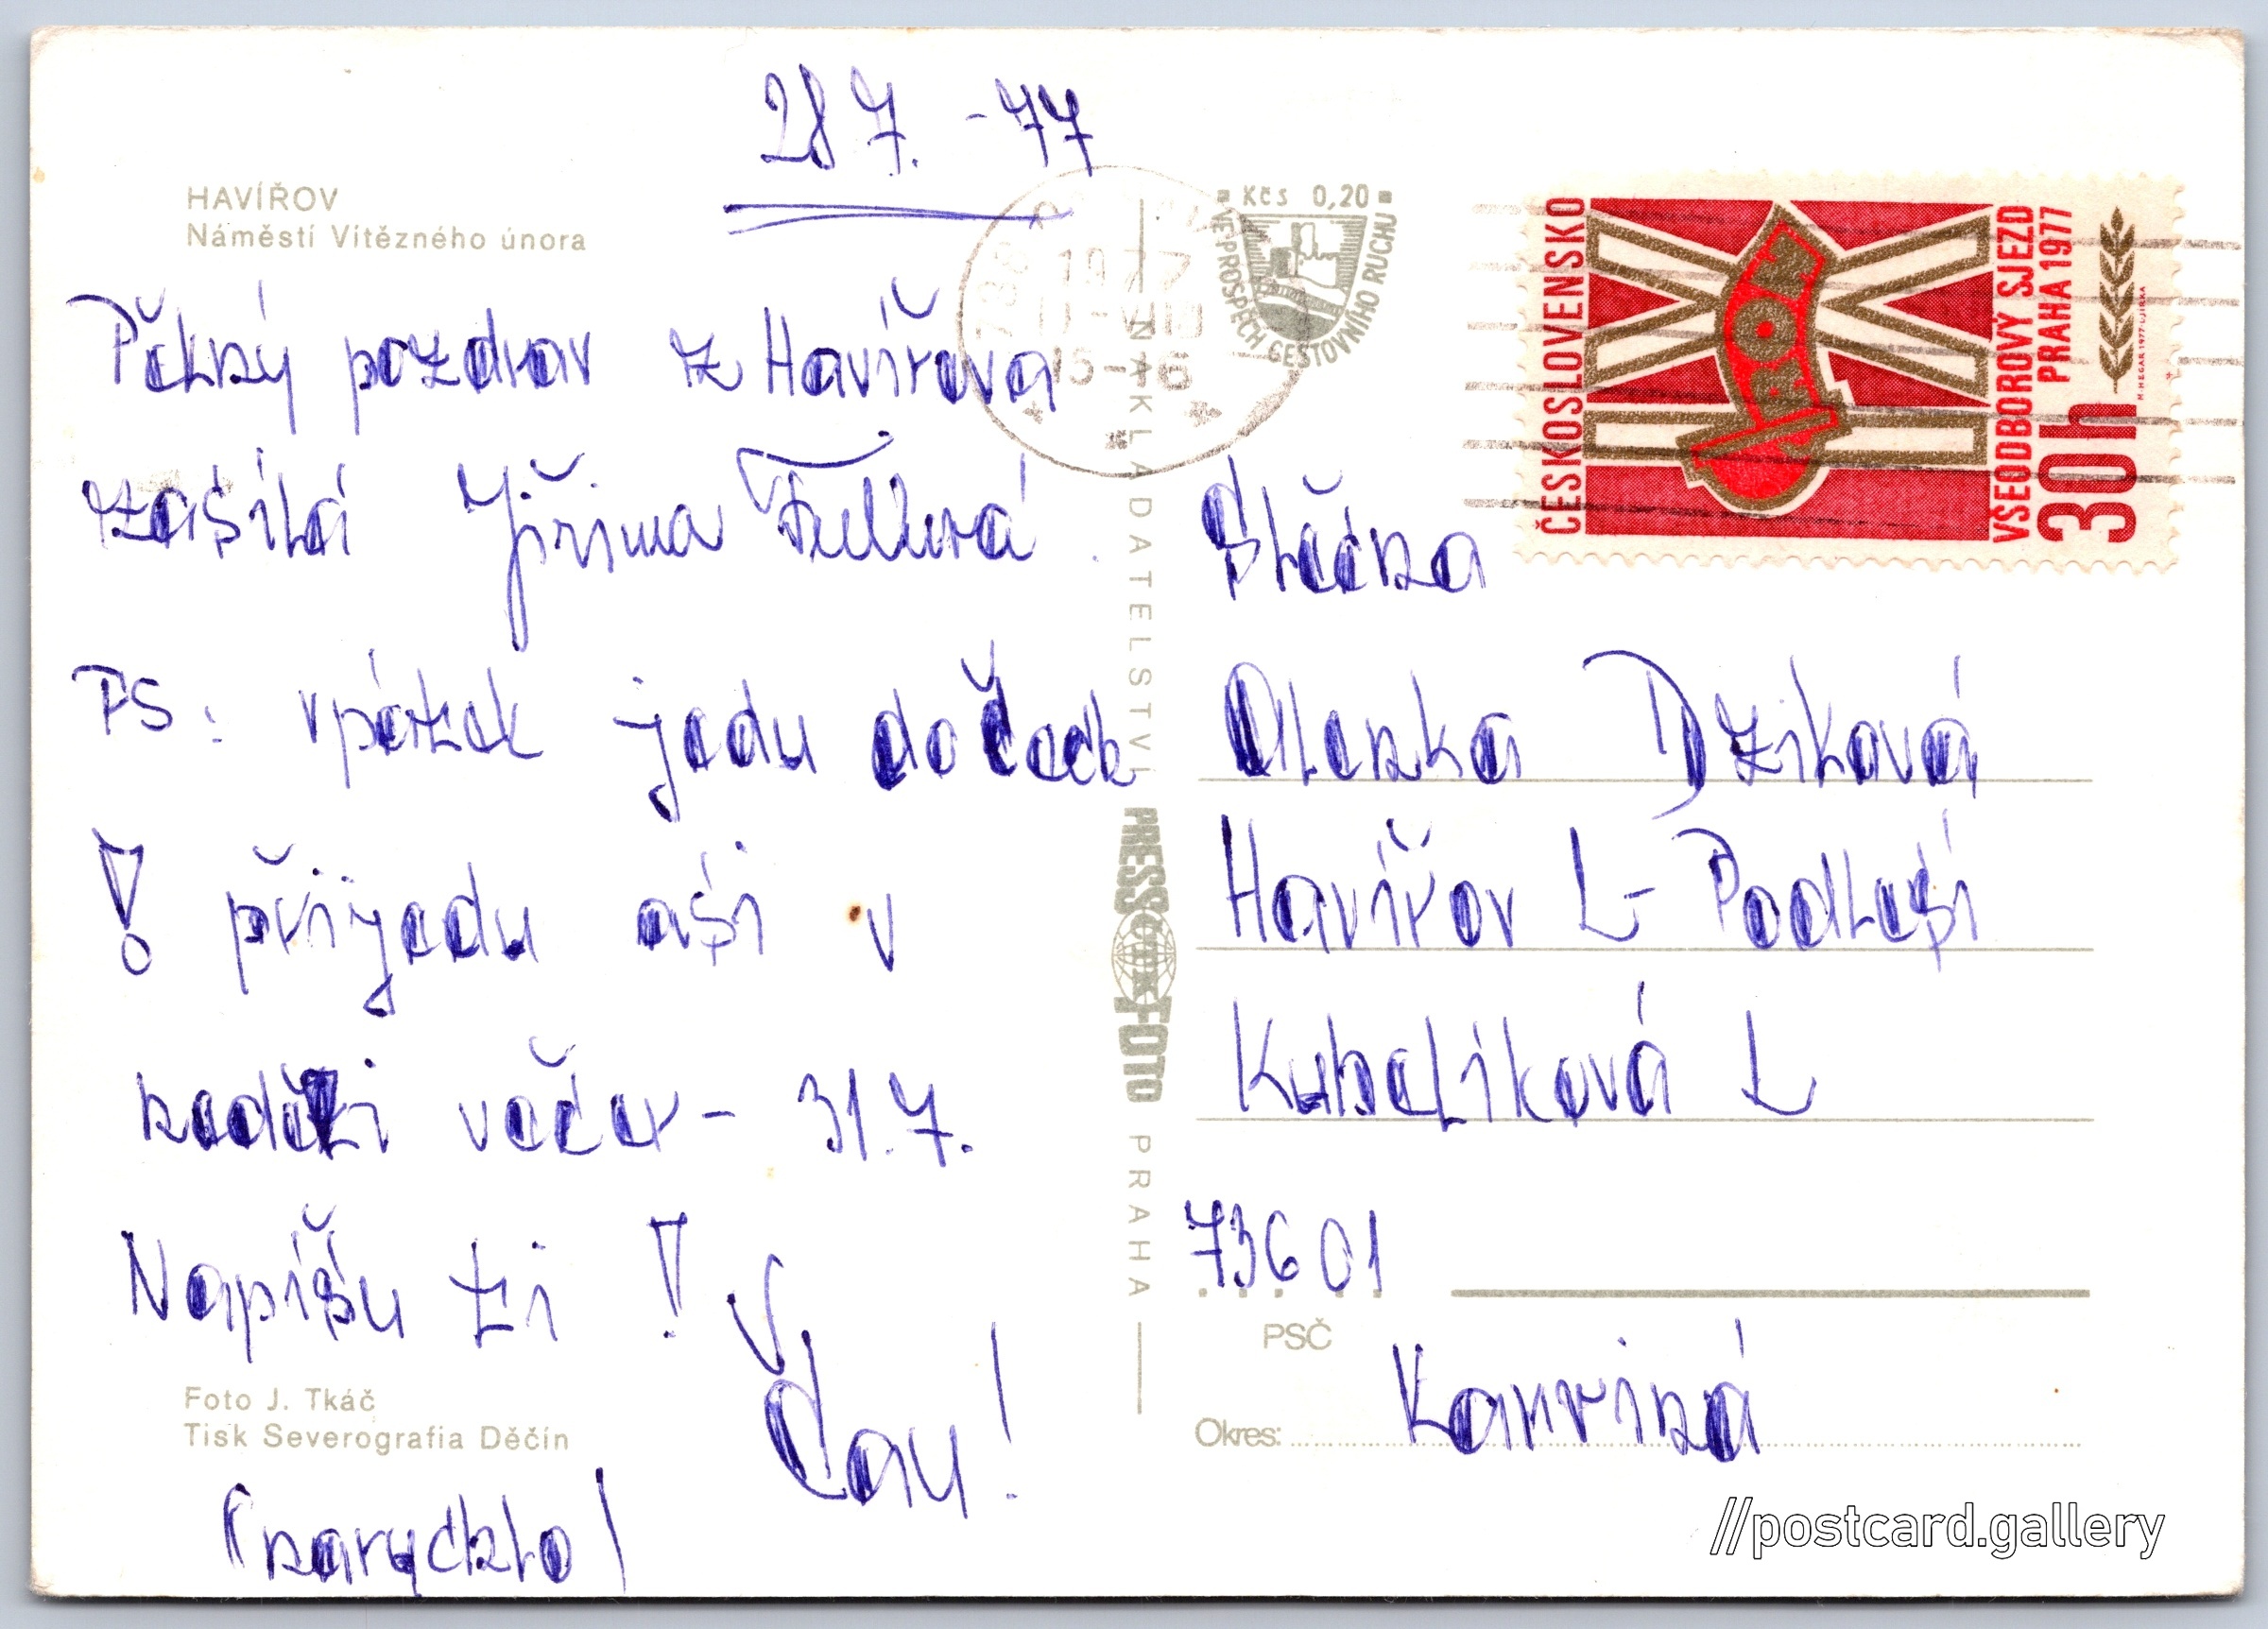 28 7. - 77
HAVÍŘOV
Náměstí Vítězného února
Pěkný pozdrav z Havířova
zasílá Jiřina
PS: v pátek jedu do Čech
! přijedu asi v
neděli večer - 31.7.
Napíšu ti !
Čau!
Foto J. Tkáč
Tisk Severografia Děčín
(narychlo)
NAKLADATELSTVÍ PRESSFOTO PRAHA
1977
15-16
Kčs 0,20
VE PROSPĚCH CESTOVNÍHO RUCHU
ČESKOSLOVENSKO
VŠEODBOROVÝ SJEZD
PRAHA 1977
30h
Slečna
Alenka Dziková
Havířov L- Podlesí
Kubelíková L
736 01
PSČ
Okres: Karviná
//postcard.gallery